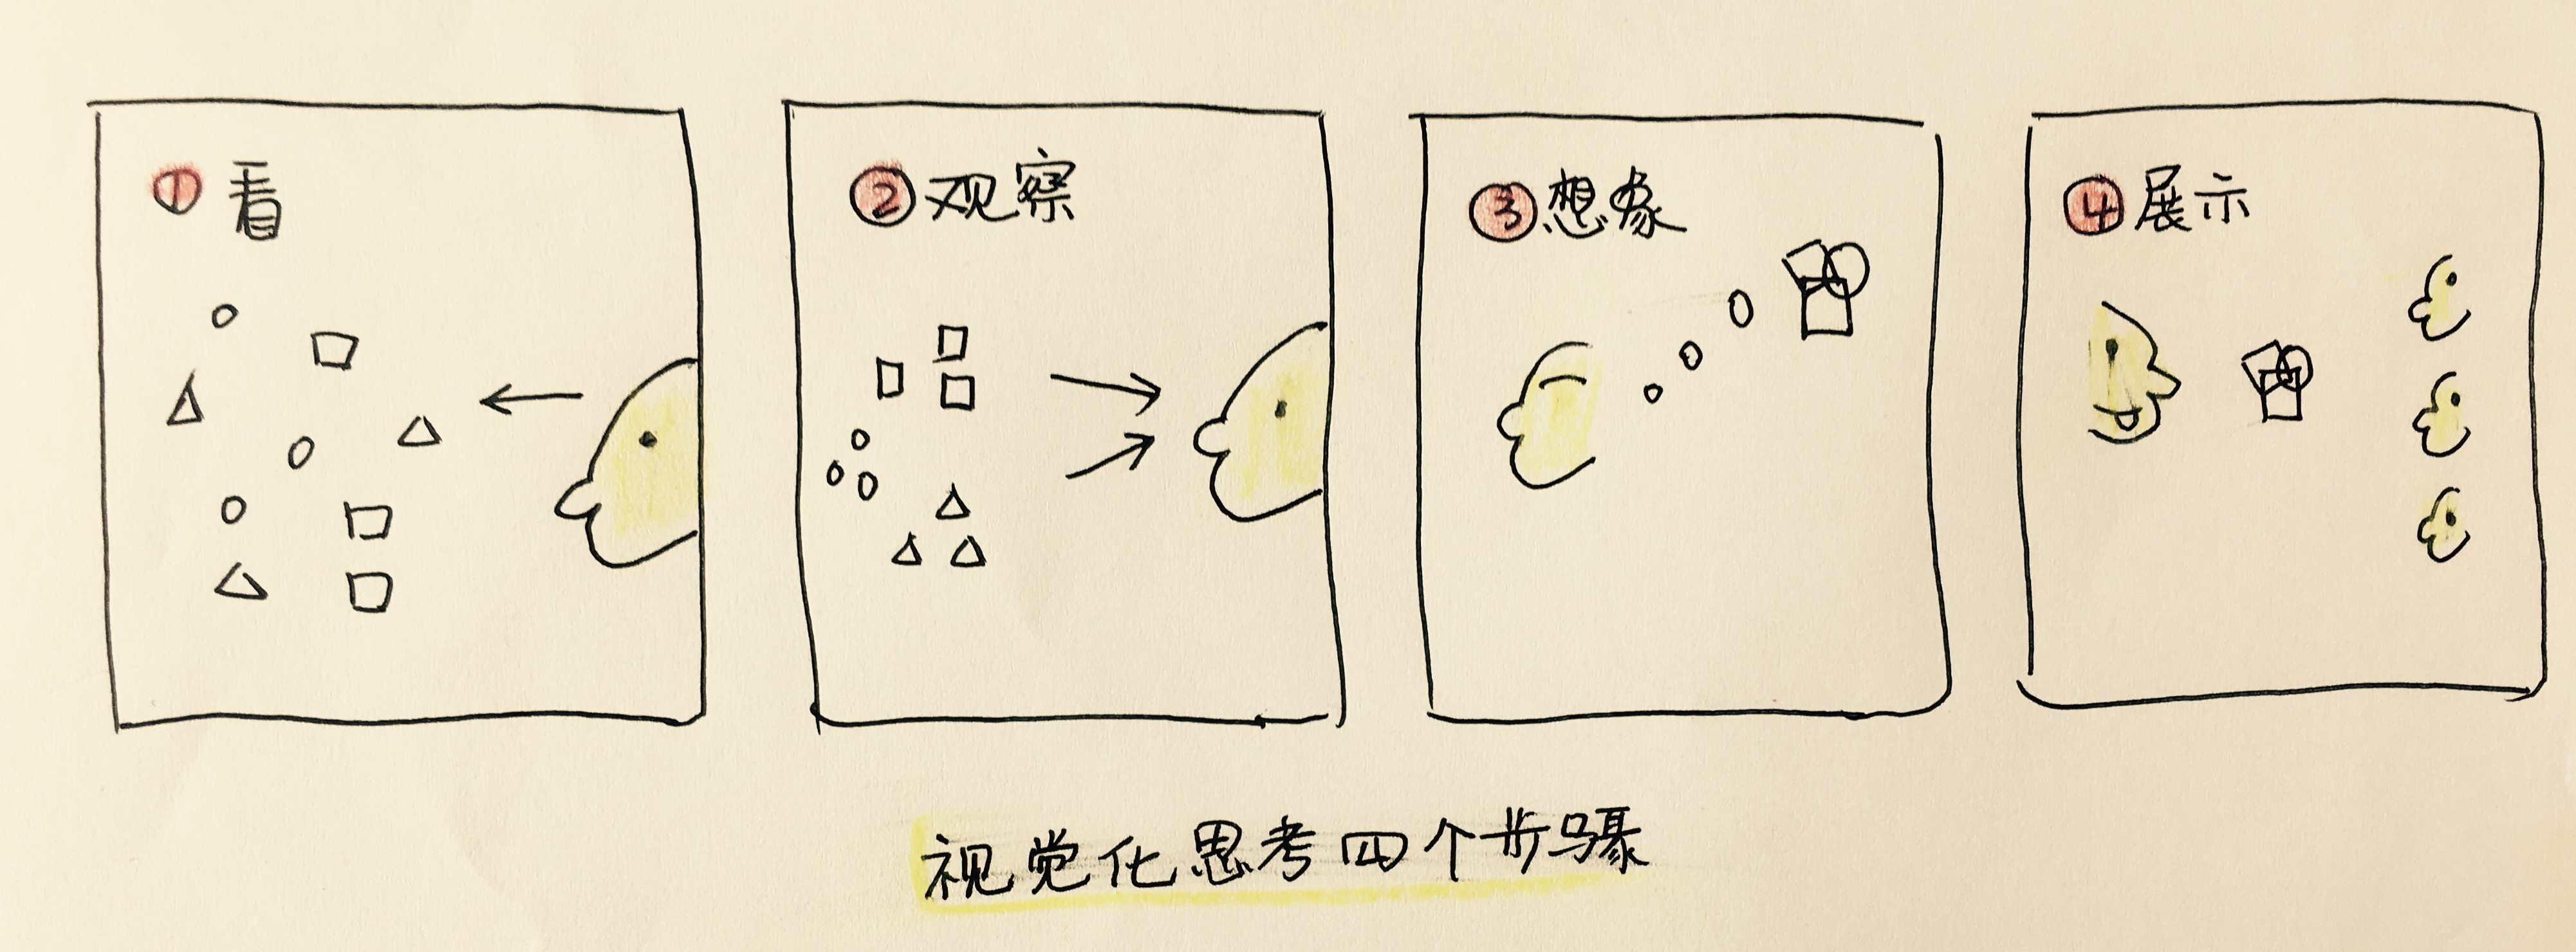 ① 看
② 观察
③ 想象
④ 展示
视觉化思考四个步骤